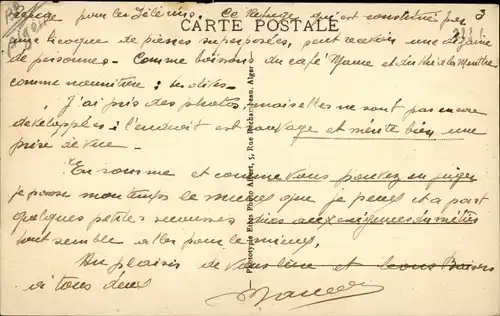 refuge pour les Pélerins. Ce Refuge qui est constitué par
CARTE POSTALE
une bicoque de pierres superposées, peut recevoir une dizaine
de personnes - Comme boissons du café Maure et du thé à la Menthe
comme nourriture : les olives -
J'ai pris des photos, mais elles ne sont pas encore
développées : l'endroit est sauvage et mérite bien une
prise de vue -
En somme et comme vous pouvez en juger
je passe mon temps le mieux que je peux et à part
quelques petites secousses dues aux exigences du métier
tout semble aller pour le mieux.
Au plaisir de vous lire et bons Baisers
à tous deux
Phototypie Etabs Photo Albert, 5, Rue Alger
3